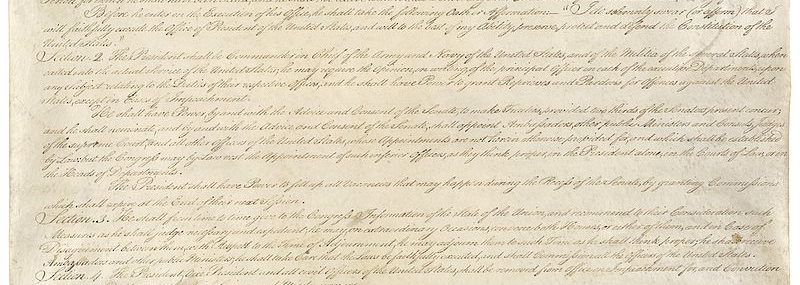 Before he enter on the Execution of his Office, he shall take the following Oath or Affirmation:— "I do solemnly swear (or affirm) that I
will faithfully execute the Office of President of the United States, and will to the best of my Ability, preserve, protect and defend the Constitution of the
United States."
Section. 2. The President shall be Commander in Chief of the Army and Navy of the United States, and of the Militia of the several States, when
called into the actual Service of the United States; he may require the Opinion, in writing, of the principal Officer in each of the executive Departments, upon
any Subject relating to the Duties of their respective Offices, and he shall have Power to grant Reprieves and Pardons for Offences against the United
States, except in Cases of Impeachment.
He shall have Power, by and with the Advice and Consent of the Senate, to make Treaties, provided two thirds of the Senators present concur;
and he shall nominate, and by and with the Advice and Consent of the Senate, shall appoint Ambassadors, other public Ministers and Consuls, Judges
of the supreme Court, and all other Officers of the United States, whose Appointments are not herein otherwise provided for, and which shall be established
by Law: but the Congress may by Law vest the Appointment of such inferior Officers, as they think proper, in the President alone, in the Courts of Law, or in
the Heads of Departments.
The President shall have Power to fill up all Vacancies that may happen during the Recess of the Senate, by granting Commissions
which shall expire at the End of their next Session.
Section. 3. He shall from time to time give to the Congress Information of the State of the Union, and recommend to their Consideration such
Measures as he shall judge necessary and expedient; he may, on extraordinary Occasions, convene both Houses, or either of them, and in Case of
Disagreement between them, with Respect to the Time of Adjournment, he may adjourn them to such Time as he shall think proper; he shall receive
Ambassadors and other public Ministers; he shall take Care that the Laws be faithfully executed, and shall Commission all the Officers of the United States.
Section. 4. The President, Vice President and all civil Officers of the United States, shall be removed from Office on Impeachment for, and Conviction